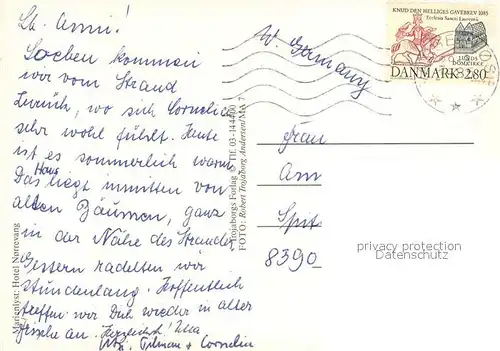 Lb. Anni!
Soeben kommen
wir vom Strand
zurück, wo sich Cornelia
sehr wohl fühlt. Heute
ist es sommerlich warm
Das Haus liegt inmitten von
alten Bäumen, ganz
in der Nähe des Strandes
Gestern radelten wir
stundenlang. Hoffentlich
treffen wir Dich wieder in alter
Frische an. Herzlichst!
Tilman + Cornelia
Marienlyst: Hotel Nørrevang
Trojaborgs Forlag © Tlf. 03-144400
FOTO: Robert Trojaborg Andersen/MA 7
W. Germany
KNUD DEN HELLIGES GAVEBREV 1085
Ecclesia Sancti Laurentii
LUNDS
DOMKIRKE
DANMARK 2.80
Frau
Am
Spit
8390
privacy protection
Datenschutz